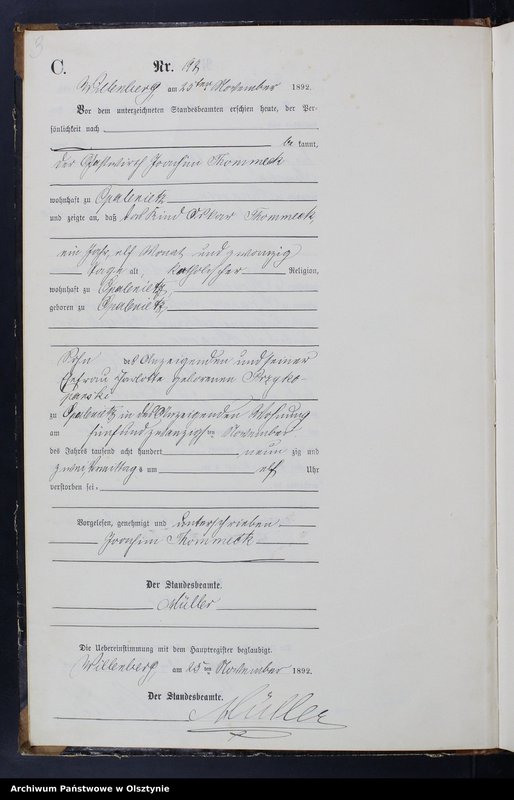 3
C. Nr. 92
Willenberg am 25ten November 1892.
Vor dem unterzeichneten Standesbeamten erschien heute, der Per-
sönlichkeit nach
be kannt,
der Gastwirth Joachim Thommeck
wohnhaft zu Opalenietz
und zeigte an, daß das Kind Oskar Thommeck
ein Jahr, elf Monat und zwanzig
Tage alt, katholischer Religion,
wohnhaft zu Opalenietz,
geboren zu Opalenietz,
Sohn des Anzeigenden und seiner
Ehefrau Charlotte geborenen
zu Opalenietz in des Anzeigenden Wohnung
am fünfundzwanzigsten November
des Jahres tausend acht hundert neun zig und
zwei Vormittags um elf Uhr
verstorben sei.
Vorgelesen, genehmigt und unterschrieben
Joachim Thommeck
Der Standesbeamte.
Müller
Die Uebereinstimmung mit dem Hauptregister beglaubigt.
Willenberg am 25ten November 1892.
Der Standesbeamte.
Müller
Archiwum Państwowe w Olsztynie